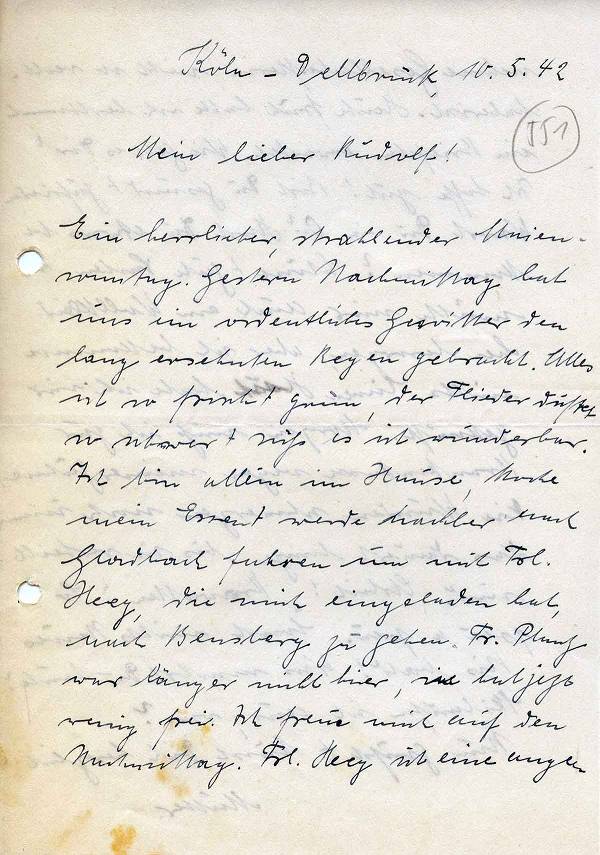 Köln - Dellbrück, 10.5.42
151
Mein lieber Rudolf!
Ein herrlicher, strahlender Maien-
sonntag. Gestern Nachmittag hat
uns ein ordentliches Gewitter den
lang ersehnten Regen gebracht. Alles
ist so frisch + grün, der Flieder duftet
so schwer + süss es ist wunderbar.
Ich bin allein im Hause, koche
mein Essen + werde nachher nach
Gladbach fahren um mit Frl.
Heeg, die mich eingeladen hat,
nach Bensberg zu gehen. Fr.
war länger nicht hier, hat jetzt
wenig frei. Ich freue mich auf den
Nachmittag. Frl. Heeg ist eine ange-